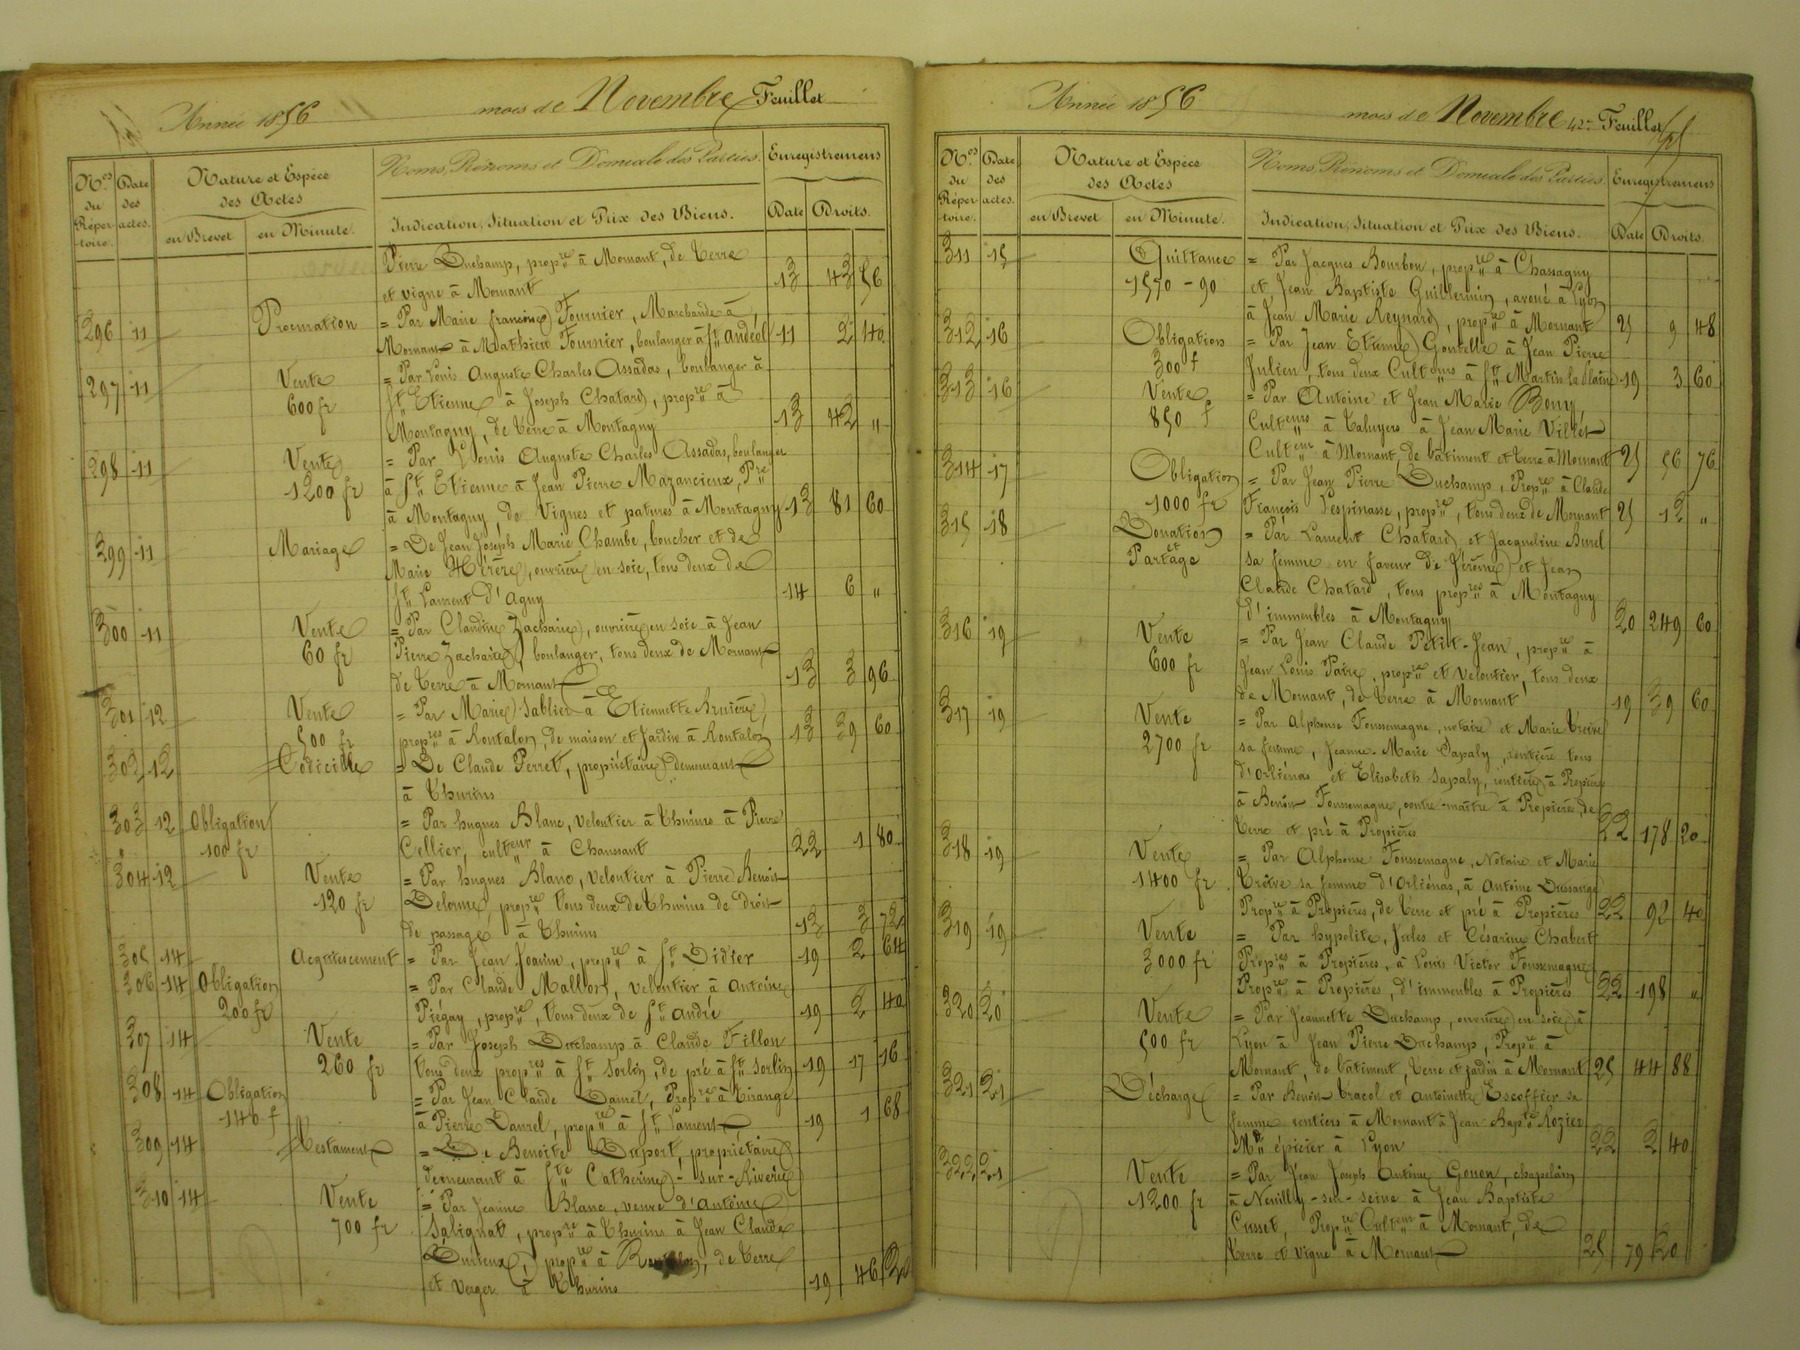 Année 1856 mois de Novembre Feuillet
Nos du Répertoire. Date des actes. Nature et Espèce des Actes Noms, Prénoms et Domicile des Parties. Enregistremens
en Brevet en Minute. Indication, Situation et Prix des Biens. Date Droits.
Pierre Duchamp, propre à Mornant, de Terre
et vigne à Mornant 13 43 56
296 11 Procuration = Par Marie françoise Fournier, Marchande à
Mornant à Mathieu Fournier, boulanger à St Andéol 11 2 40
297 11 Vente = Par Louis Auguste Charles Assadas, boulanger à
600 fr St Etienne à Joseph Chatard, propre à
Montagny, de Terre à Montagny 13 42 "
298 11 Vente = Par Louis Auguste Charles Assadas, boulanger
1200 fr à St Etienne à Jean Pierre Mazancieux, Pre
à Montagny, de Vignes et patures à Montagny 13 81 60
299 11 Mariage = De Jean Joseph Marie Chambe, boucher et de
Marie, ouvrière en soie, tous deux de
St Laurent d'Agny 14 6 "
300 11 Vente = Par Claudine Zacharie, ouvrière en soie à Jean
60 fr Pierre Zacharie, boulanger, tous deux de Mornant
de Terre à Mornant 13 3 96
301 12 Vente = Par Marie Sablier à Etiennette Bruière,
500 fr propres à Rontalon, de maison et Jardin à Rontalon 13 39 60
302 12 Codicille = De Claude Perret, propriétaire demeurant
à Thurins
303 12 Obligation = Par hugues Blanc, veloutier à Thurins à Pierre
100 fr Cellier, culteur à Chaussant 22 1 80
304 12 Vente = Par hugues Blanc, veloutier à Pierre Benoit
120 fr Delorme, propre tous deux de Thurins de droit
de passage à Thurins 13 3 72
305 14 Acquiescement = Par Jean Joanin, propre à St Didier 19 2 64
306 14 Obligation = Par Claude Mallon, veloutier à Antoine
200 fr Piégay, propre, tous deux de St André 19 2 40
307 14 Vente = Par Joseph Duchamp à Claude Fillon
260 fr tous deux propres à St Sorlin, de pré à St Sorlin 19 17 16
308 14 Obligation = Par Jean Claude Daurel, Propre à
140 f à Pierre Daurel, propre à St Laurent 19 1 68
309 14 Testament = De Benoite Duport, propriétaire
demeurant à Ste Catherine-sur-Riverie
310 14 Vente = Par Jeanne Blanc, veuve d'Antoine
700 fr Salignat, propre à Thurins à Jean Claude
Durieux, propre à Rontalon, de Terre
et verger à Thurins 19 46 20
Année 1856 mois de Novembre 42e Feuillet
Nos du Répertoire. Date des actes. Nature et Espèce des Actes Noms, Prénoms et Domicile des Parties. Enregistremens
en Brevet en Minute. Indication, Situation et Prix des Biens. Date Droits.
311 15 Quittance = Par Jacques Bourbon, propre à Chassagny
1570-90 et Jean Baptiste Guillermin, avoué à Lyon
à Jean Marie Reynard, propre à Mornant 25 9 48
312 16 Obligation = Par Jean Etienne Goutelle à Jean Pierre
300 f Julien, tous deux Culteurs à St Martin la plaine 19 3 60
313 16 Vente = Par Antoine et Jean Marie Bony
850 f Culteurs à Taluyers à Jean Marie Villet
Culteur à Mornant, de bâtiment et terre à Mornant 25 56 76
314 17 Obligation = Par Jean Pierre Duchamp, Propre à Claude
1000 fr François Lespinasse, propre, tous deux de Mornant 25 12 "
315 18 Donation = Par Laurent Chatard et Jacqueline Burel
et Partage sa femme en faveur de Jérôme et Jean
Claude Chatard, tous propres à Montagny
d'immeubles à Montagny 20 249 60
316 19 Vente = Par Jean Claude Petit-Jean, propre à
600 fr Jean Louis Patre, propre et veloutier, tous deux
de Mornant, de Terre à Mornant 19 39 60
317 19 Vente = Par Alphonse Fonsemagne, notaire et Marie Treive
2700 fr sa femme, Jeanne-Marie Sapaly, rentière tous
d'Orliénas et Elisabeth Sapaly, rentière à Propières
à Benoit Fonsemagne, contre-maître à Propières, de
terre et pré à Propières 22 178 20
318 19 Vente = Par Alphonse Fonssemagne, Notaire et Marie
1400 fr Treive sa femme d'Orliénas, à Antoine Dussange
Propre à Propières, de Terre et pré à Propières 22 92 40
319 19 Vente = Par hypolite, Jules et Césarine Chabert
3000 fr Propres à Propières, à Louis Victor Fonsemagne
Propre à Propières, d'immeubles à Propières 22 198 "
320 20 Vente = Par Jeannette Duchamp, ouvrière en soie à
500 fr Lyon à Jean Pierre Duchamp, Propre à
Mornant, de bâtiment, Terre et jardin à Mornant 25 44 88
321 21 Décharge = Par Benoit Tracol et Antoinette Escoffier sa
femme rentiers à Mornant à Jean Bapte Rozier
Md épicier à Lyon 22 2 40
322 21 Vente = Par Jean Joseph Antoine Gouon, chapelain
1200 fr à Neuilly-sur-seine à Jean Baptiste
Cunet, Propre Culteur à Mornant, de
Terre et vigne à Mornant 25 79 20